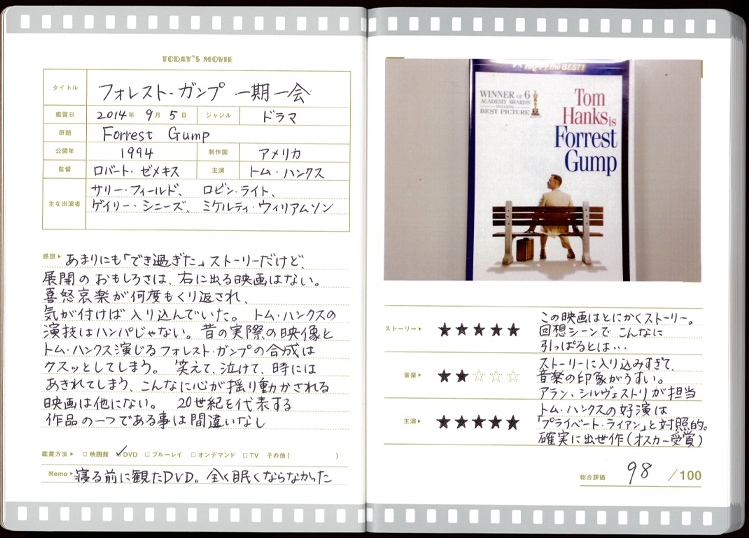 TODAY'S MOVIE
タイトル フォレスト・ガンプ 一期一会
鑑賞日 2014年 9月 5日 ジャンル ドラマ
原題 Forrest Gump
公開年 1994 制作国 アメリカ
監督 ロバート・ゼメキス 主演 トム・ハンクス
主な出演者 サリー・フィールド、ロビン・ライト、
ゲイリー・シニーズ、ミケルティ・ウィリアムソン
感想▶ あまりにも「でき過ぎた」ストーリーだけど、
展開のおもしろさは、右に出る映画はない。
喜怒哀楽が何度もくり返され、
気が付けば入り込んでいた。トム・ハンクスの
演技はハンパじゃない。昔の実際の映像と
トム・ハンクス演じるフォレスト・ガンプの合成は
クスッとしてしまう。笑えて、泣けて、時には
あきれてしまう、こんなに心が揺り動かされる
映画は他にない。20世紀を代表する
作品の一つである事は間違いなし
鑑賞方法▶ □映画館 ✓DVD □ブルーレイ □オンデマンド □TV その他( )
Memo▶ 寝る前に観たDVD。全く眠くならなかった
WINNER OF 6
ACADEMY AWARDS
BEST PICTURE
Tom
Hanks is
Forrest
Gump
ストーリー▶ ★★★★★
この映画はとにかくストーリー。
回想シーンでこんなに
引っぱるとは…
音楽▶ ★★☆☆☆
ストーリーに入り込みすぎて、
音楽の印象がうすい。
アラン、シルヴェストリが担当
主演▶ ★★★★★
トム・ハンクスの好演は
「プライベート・ライアン」と対照的。
確実に出世作(オスカー受賞)
総合評価 98 /100